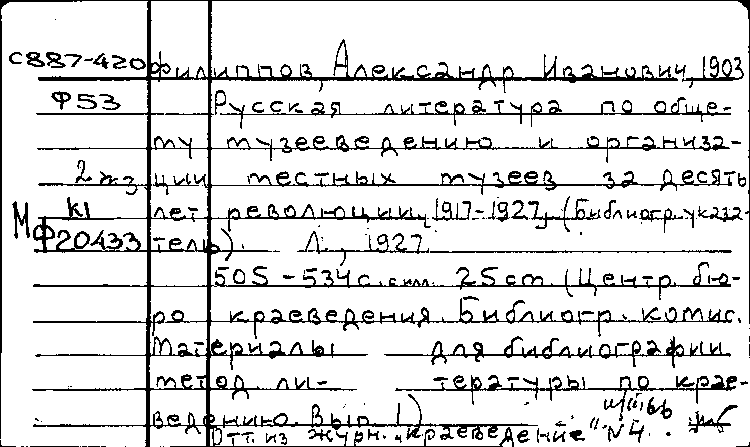 С887-420 Филиппов, Александр Иванович, 1903
Ф53 Русская литература по обще-
му музееведению и организа-
2 жз ции местных музеев за десять
К1 лет революции, 1917-1927, (Библиогр. указа-
МФ20433 тель). Л., 1927.
505-534 с. с илл. 25 cm. (Центр. бю-
ро краеведения. Библиогр. комис.
Материалы для библиографии
метод ли- тературы по крае-
ведению. Вып. 1)
Отт. из журн. „Краеведение" №4.